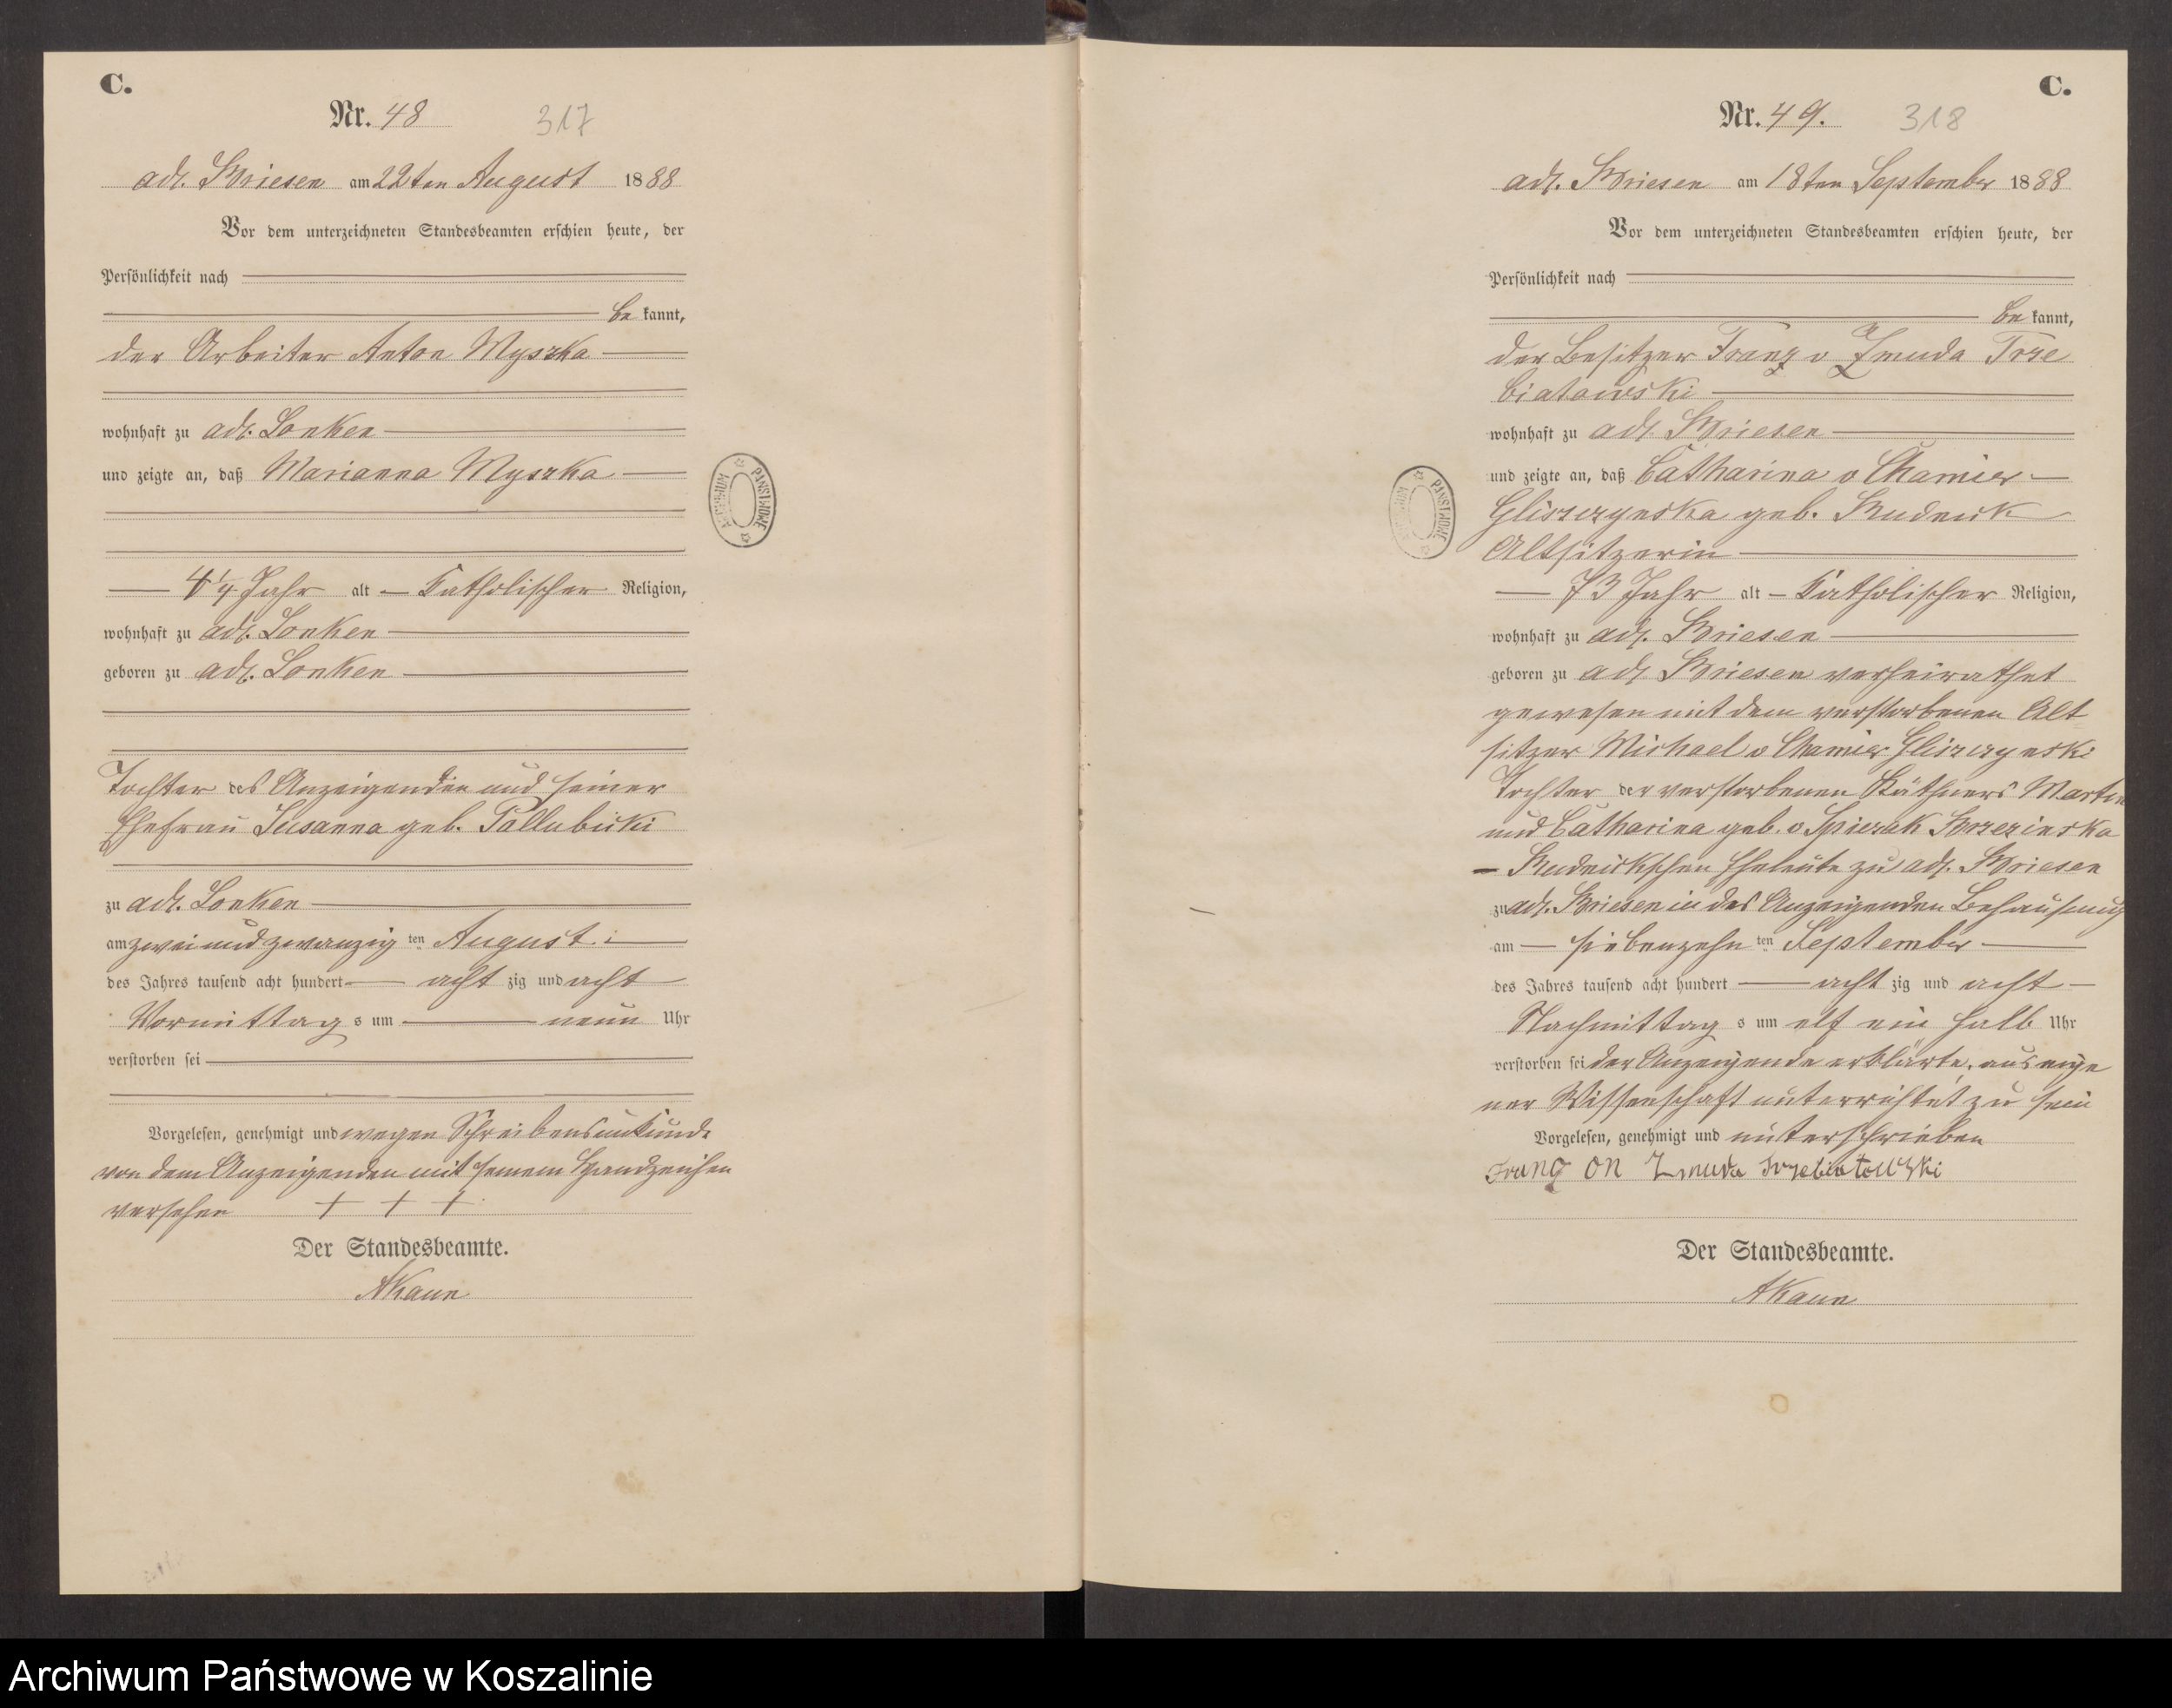 C.
Nr. 48 317
adl. Briesen am 22ten August 1888
Vor dem unterzeichneten Standesbeamten erschien heute, der
Persönlichkeit nach
be kannt,
der Arbeiter Anton Myszka
wohnhaft zu adl. Lonken
und zeigte an, daß Marianna Myszka
4 1/4 Jahr alt Katholischer Religion,
wohnhaft zu adl. Lonken
geboren zu adl. Lonken
Tochter des Anzeigenden und seiner
Ehefrau Susanna geb. Pallubicki
zu adl. Lonken
am zwei und zwanzig ten August
des Jahres tausend acht hundert acht zig und acht
Vormittag s um neun Uhr
verstorben sei
Vorgelesen, genehmigt und wegen Schreibensunkunde
von dem Anzeigenden mit seinem Handzeichen
versehen + + +
Der Standesbeamte.
AKaun
ARCHIWUM PAŃSTWOWE
C.
Nr. 49. 318
adl. Briesen am 18ten September 1888
Vor dem unterzeichneten Standesbeamten erschien heute, der
Persönlichkeit nach
be kannt,
der Besitzer Franz v Zmuda Trze
biatowski
wohnhaft zu adl Briesen
und zeigte an, daß Catharina v Chamier
Gliszczynska geb. Rudnik
Altsitzerin
73 Jahr alt Katholischer Religion,
wohnhaft zu adl. Briesen
geboren zu adl Briesen verheirathet
gewesen mit dem verstorbenen Alt
sitzer Michael v Chamier Gliszczynski
Tochter der verstorbenen Käthners Martin
und Catharina geb. v Spiczak Brzezinska
Rudnickschen Eheleute zu adl. Briesen
zu adl. Briesen in des Anzeigenden Behausung
am siebenzehn ten September
des Jahres tausend acht hundert acht zig und acht
Nachmittag s um elf ein halb Uhr
verstorben sei der Anzeigende erklärte, aus eige
ner Wissenschaft unterrichtet zu sein
Vorgelesen, genehmigt und unterschrieben
Franz on Zmuda Trzebiatowski
Der Standesbeamte.
AKaun
ARCHIWUM PAŃSTWOWE
Archiwum Państwowe w Koszalinie